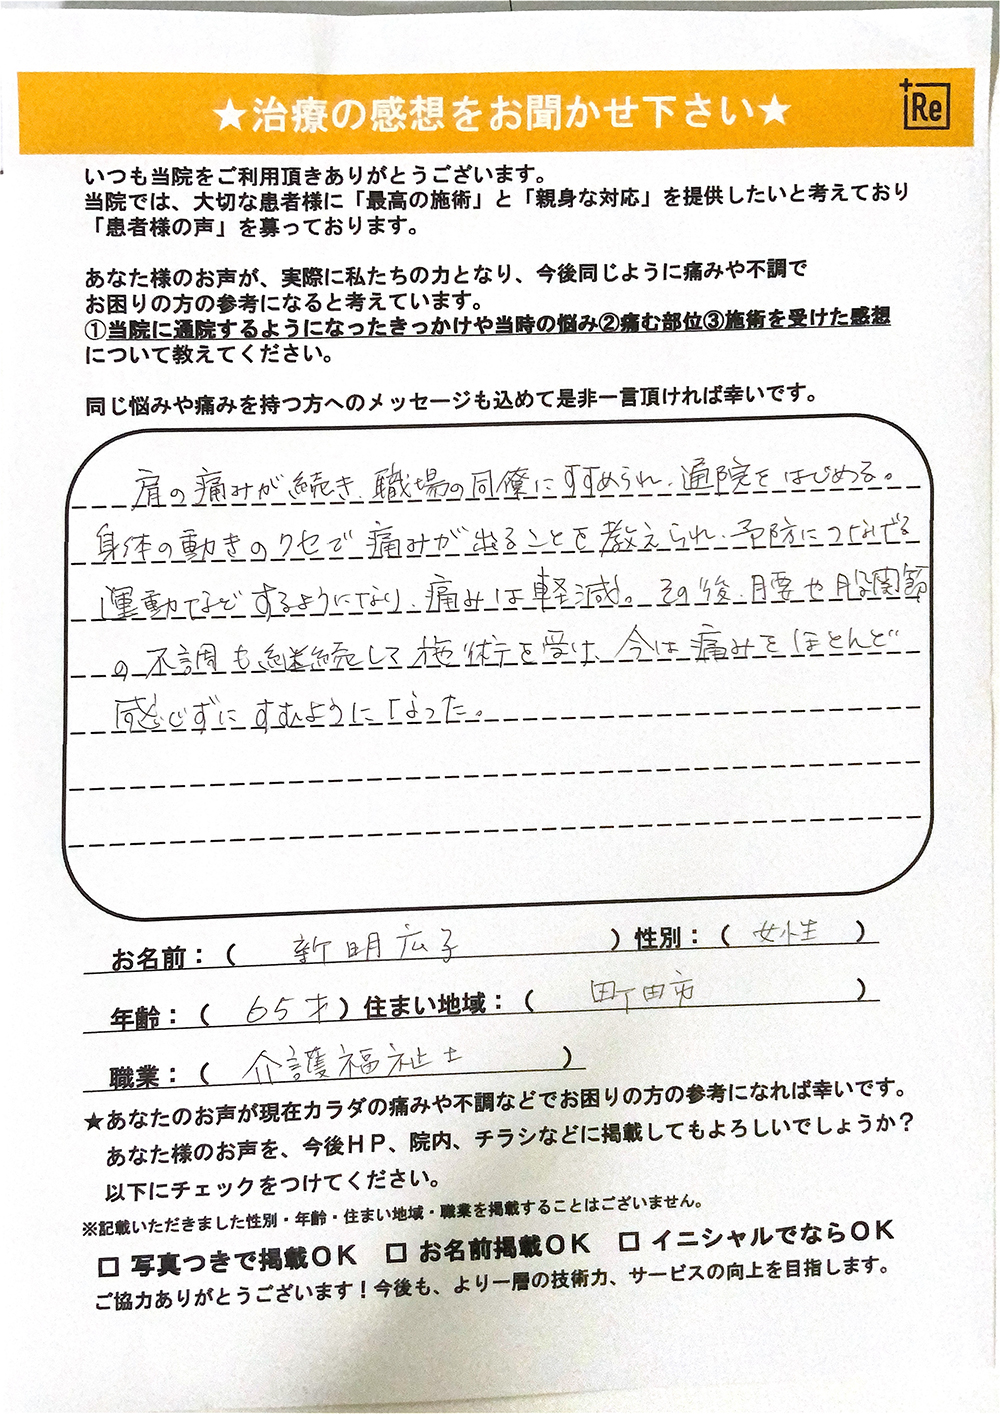 ★治療の感想をお聞かせ下さい★
Re
いつも当院をご利用頂きありがとうございます。
当院では、大切な患者様に「最高の施術」と「親身な対応」を提供したいと考えており
「患者様の声」を募っております。
あなた様のお声が、実際に私たちの力となり、今後同じように痛みや不調で
お困りの方の参考になると考えています。
①当院に通院するようになったきっかけや当時の悩み②痛む部位③施術を受けた感想
について教えてください。
同じ悩みや痛みを持つ方へのメッセージも込めて是非一言頂ければ幸いです。
肩の痛みが続き、職場の同僚にすすめられ、通院をはじめる。
身体の動きのクセで痛みが出ることを教えられ、予防につなげる
運動などするようになり、痛みは軽減。その後、腰や股関節
の不調も継続して施術を受け、今は痛みをほとんど
感じずにすむようになった。
お名前：（ 新明広子 ）性別：（ 女性 ）
年齢：（ 65才 ）住まい地域：（ 町田市 ）
職業：（ 介護福祉士 ）
★あなたのお声が現在カラダの痛みや不調などでお困りの方の参考になれば幸いです。
あなた様のお声を、今後ＨＰ、院内、チラシなどに掲載してもよろしいでしょうか？
以下にチェックをつけてください。
※記載いただきました性別・年齢・住まい地域・職業を掲載することはございません。
□ 写真つきで掲載ＯＫ □ お名前掲載ＯＫ □ イニシャルでならＯＫ
ご協力ありがとうございます！今後も、より一層の技術力、サービスの向上を目指します。